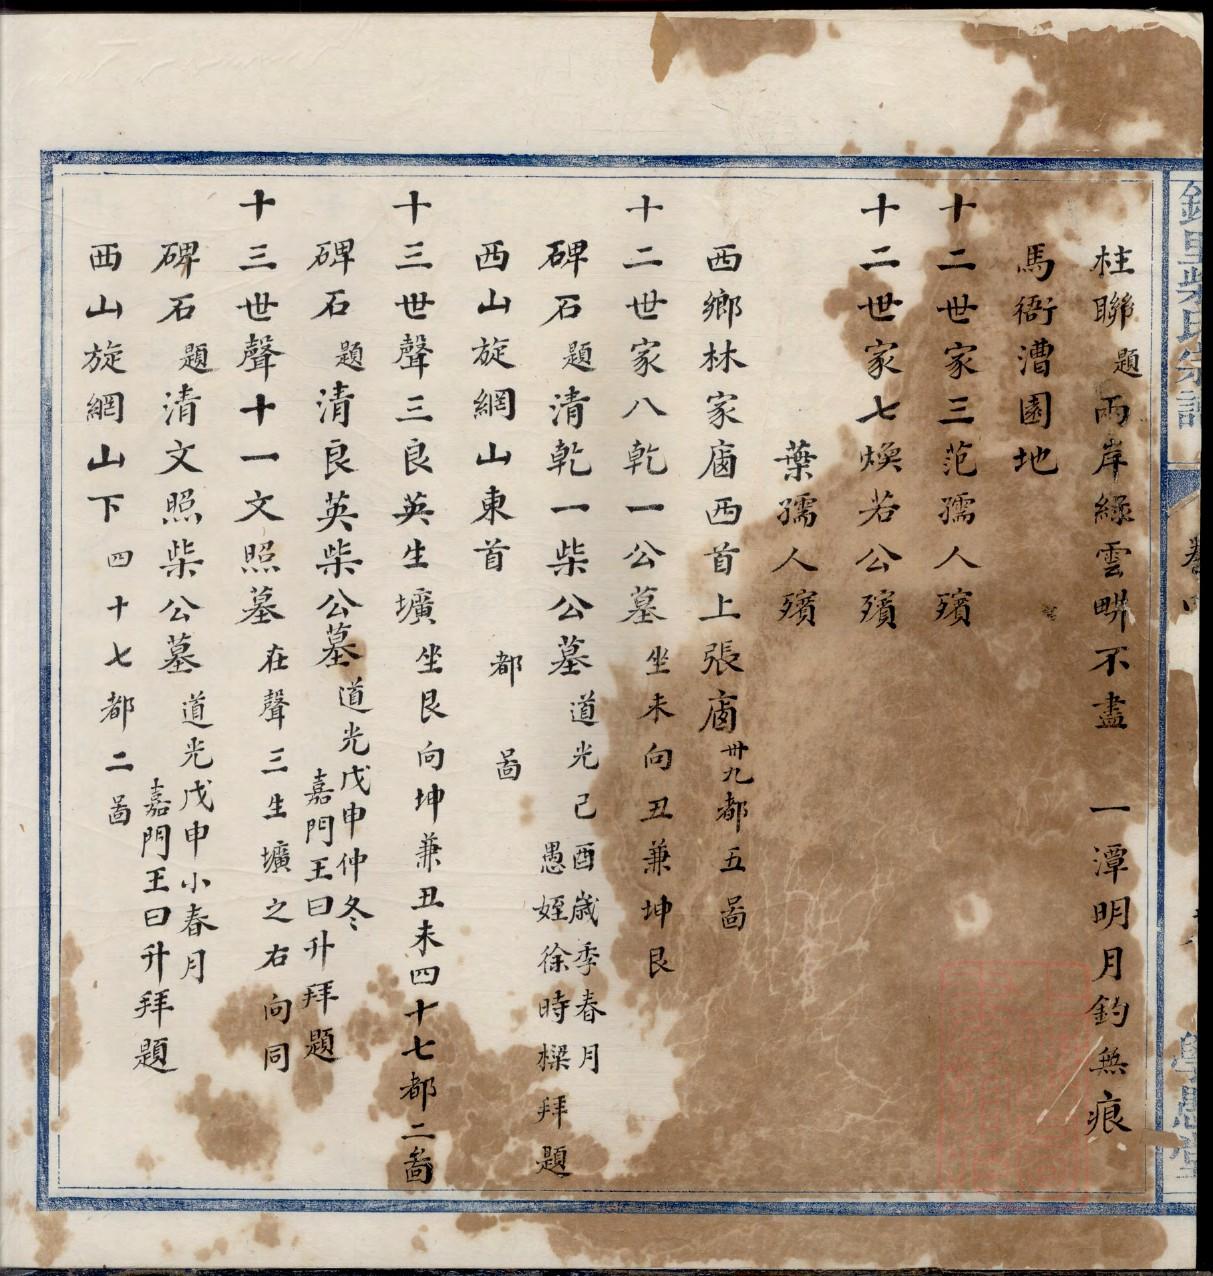 柱聯題兩岸綠雲畊不盡 一潭明月釣無痕
馬衙漕園地
十二世家三范孺人殯
十二世家七煥若公殯
葉孺人殯
西鄉林家廍西首上張廍卅九都五啚
十二世家八乾一公墓坐未向丑兼坤艮
碑石題清乾一柴公墓道光己酉歲季春月
愚姪徐時樑拜題
西山旋網山東首 都 啚
十三世聲三良英生壙坐艮向坤兼丑未四十七都二啚
碑石題清良英柴公墓道光戊申仲冬
嘉門王曰升拜題
十三世聲十一文照墓在聲三生壙之右向同
碑石題清文照柴公墓道光戊申小春月
嘉門王曰升拜題
西山旋網山下四十七都二啚